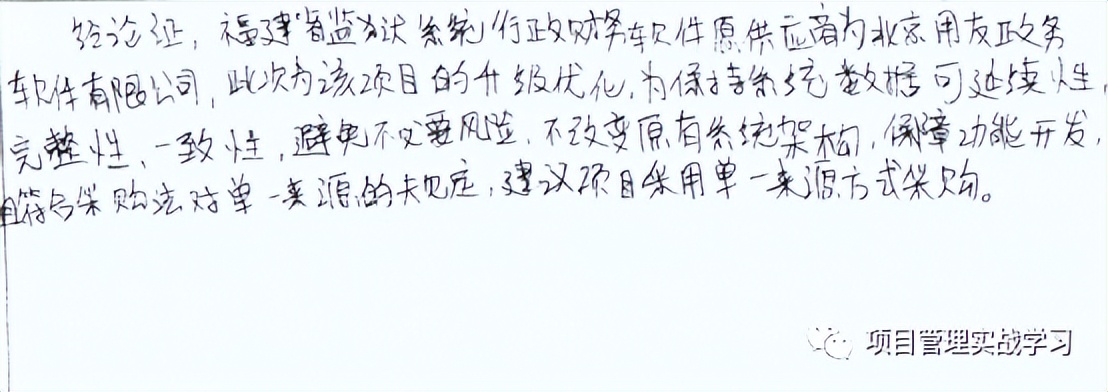 经论证，福建省监狱系统行政财务软件原供应商为北京用友政务
软件有限公司，此次为该项目的升级优化，为保持系统数据可延续性，
完整性、一致性，避免不必要风险，不改变原有系统架构，保障功能开发，
且符合采购法对单一来源的规定，建议项目采用单一来源方式采购。
项目管理实战学习